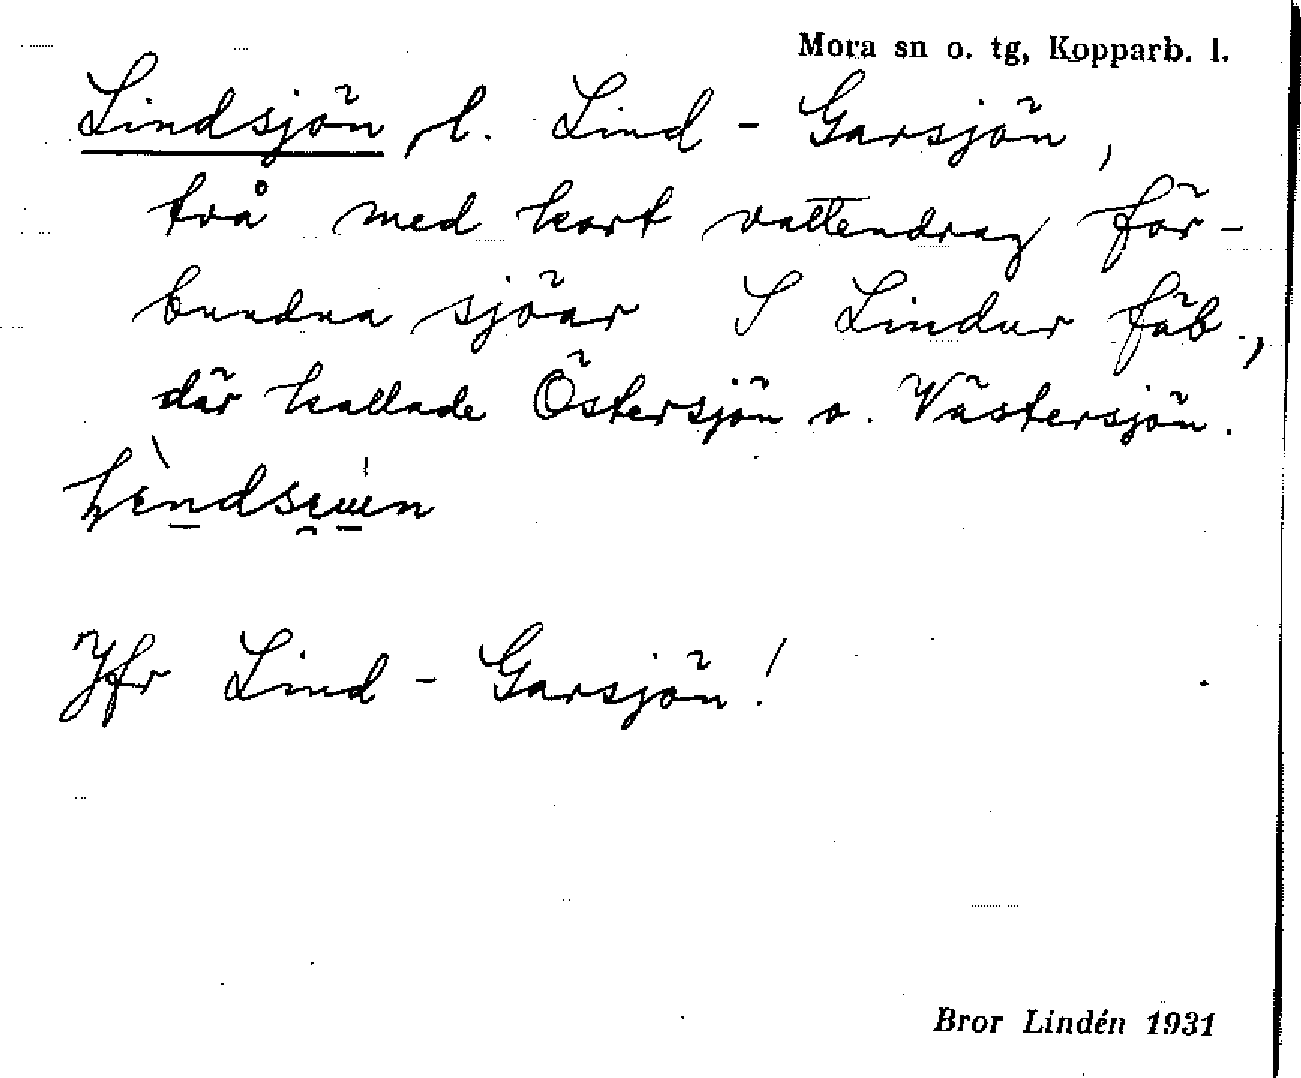 Mora sn o. tg, Kopparb. l.
Lindsjön, l. Lind - Garsjön,
två med kort vattendrag för-
bundna sjöar S Lindur fäb.,
där kallade Östersjön o. Västersjön.
Jfr Lind - Garsjön!
Bror Lindén 1931